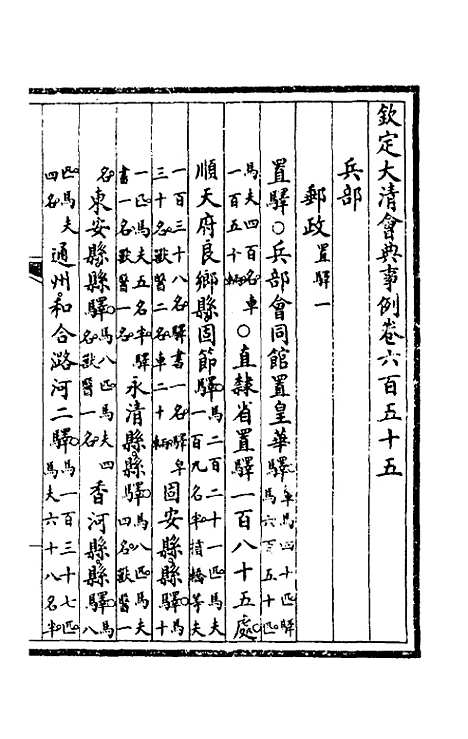 欽定大清會典事例卷六百五十五
兵部
郵政置驛一
置驛○兵部會同館置皇華驛車馬四十匹驛馬六百五十匹
馬夫四百名車一百五十輛○直隸省置驛一百八十五處
順天府良鄉縣固節驛馬二百二十一匹馬夫一百九名半等夫
一百三十八名驛書一名驛皁三十名獸醫二名車二十輛固安縣縣驛馬十
一匹馬夫五名半驛書一名獸醫一名永清縣縣驛馬八匹馬夫四名獸醫一
名東安縣縣驛馬八匹馬夫四名獸醫一名香河縣縣驛馬八
匹馬夫四名通州和合潞河二驛馬一百三十七匹馬夫六十八名半